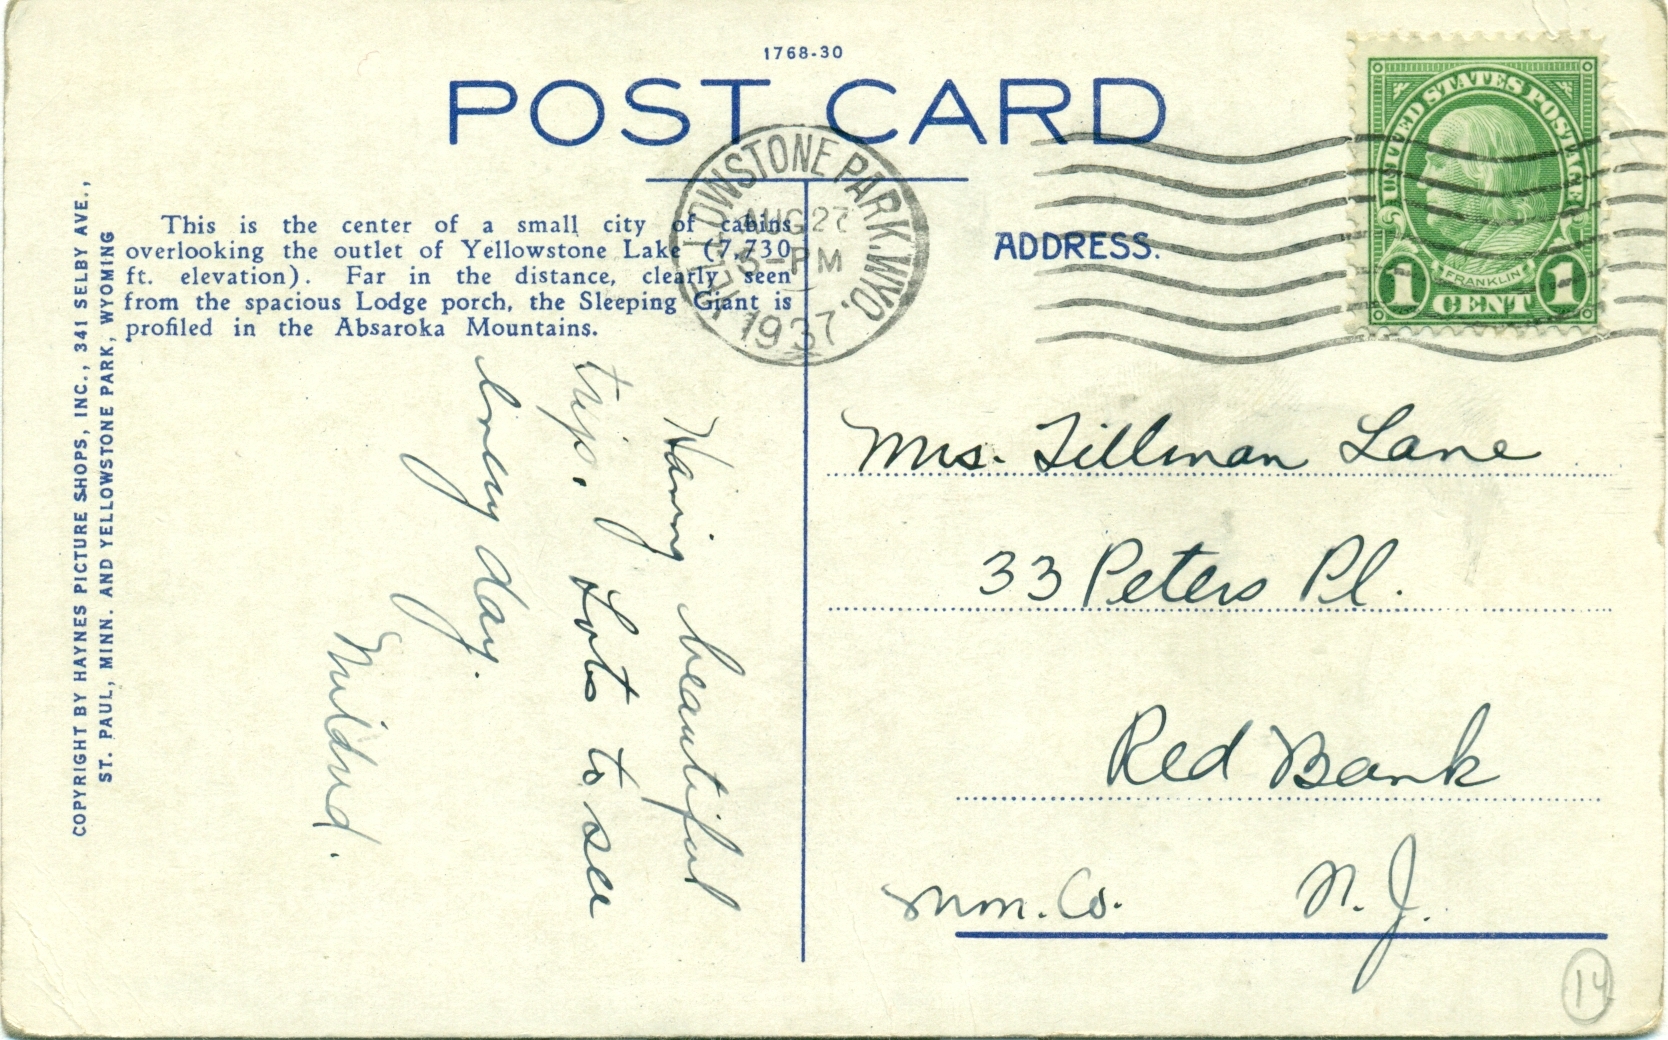 1768-30
POST CARD
YELLOWSTONE PARK, WYO.
AUG 27
PM
1937
UNITED STATES POSTAGE
FRANKLIN
1 CENT 1
This is the center of a small city of cabins
overlooking the outlet of Yellowstone Lake (7,730
ft. elevation). Far in the distance, clearly seen
from the spacious Lodge porch, the Sleeping Giant is
profiled in the Absaroka Mountains.
COPYRIGHT BY HAYNES PICTURE SHOPS, INC., 341 SELBY AVE.,
ST. PAUL, MINN. AND YELLOWSTONE PARK, WYOMING
Having beautiful
trip. Lots to see
every day.
Mildred.
ADDRESS.
Mrs. Tillman Lane
33 Peters Pl.
Red Bank
Mm. Co. N. J.
14